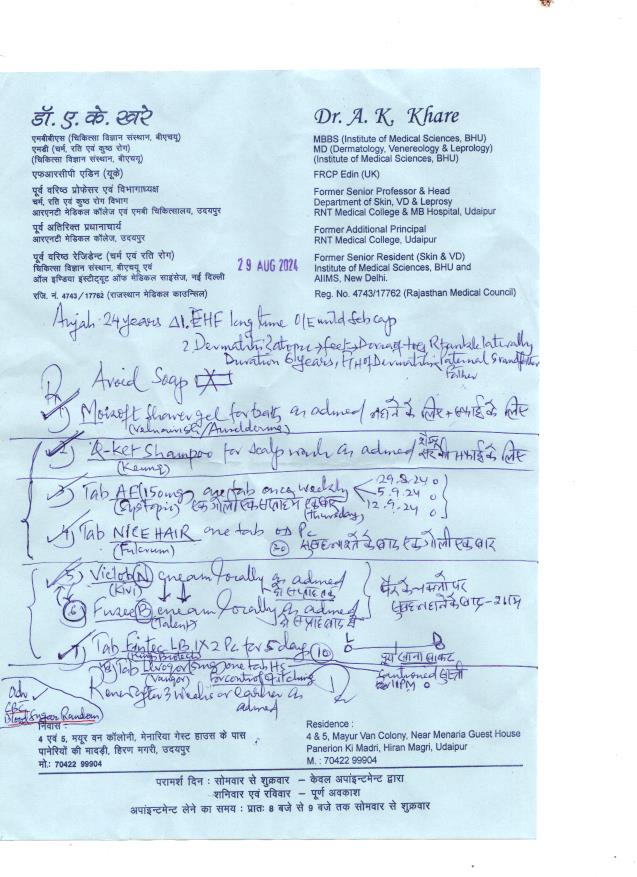 डॉ. ए. के. खरे
एमबीबीएस (चिकित्सा विज्ञान संस्थान, बीएचयू)
एमडी (चर्म, रति एवं कुष्ठ रोग)
(चिकित्सा विज्ञान संस्थान, बीएचयू)
एफआरसीपी एडिन (यूके)
पूर्व वरिष्ठ प्रोफेसर एवं विभागाध्यक्ष
चर्म, रति एवं कुष्ठ रोग विभाग
आरएनटी मेडिकल कॉलेज एवं एमबी चिकित्सालय, उदयपुर
पूर्व अतिरिक्त प्रधानाचार्य
आरएनटी मेडिकल कॉलेज, उदयपुर
पूर्व वरिष्ठ रेजिडेन्ट (चर्म एवं रति रोग)
चिकित्सा विज्ञान संस्थान, बीएचयू एवं
ऑल इण्डिया इंस्टीट्यूट ऑफ मेडिकल साइंसेज, नई दिल्ली
रजि. नं. 4743/17762 (राजस्थान मेडिकल काउन्सिल)
Dr. A. K. Khare
MBBS (Institute of Medical Sciences, BHU)
MD (Dermatology, Venereology & Leprology)
(Institute of Medical Sciences, BHU)
FRCP Edin (UK)
Former Senior Professor & Head
Department of Skin, VD & Leprosy
RNT Medical College & MB Hospital, Udaipur
Former Additional Principal
RNT Medical College, Udaipur
Former Senior Resident (Skin & VD)
Institute of Medical Sciences, BHU and
AIIMS, New Delhi.
Reg. No. 4743/17762 (Rajasthan Medical Council)
29 AUG 2024
24 years Δ 1. EHF long time O/E mild seb cap
2. Dermatitis ? atopic feet
Duration 6 years, Dermatitis Paternal Grandfather
Father
Rx Avoid Soap
1) Moisoft Shower gel for bath as advised नहाने के लिए
2) Q-ket Shampoo for scalp wash as advised
3) Tab AF 150mg one tab once weekly 29.8.24
(Cyptopic) एक गोली एक सप्ताह में एक बार 5.9.24
(Thursday) 12.9.24
4) Tab NICE HAIR one tab OD Pc
(Fulcrum) 30
5) N cream locally as advised
(Kivi)
6 B cream locally as advised
(Talent)
7) Tab LB 1X2 Pc for 5 days 10
8) Tab 5mg one tab HS
for control of itching
Renew after 3 weeks or earlier as
advised
Adv
CBC
Blood Sugar Random
निवास :
4 एवं 5, मयूर वन कॉलोनी, मेनारिया गेस्ट हाउस के पास
पानेरियों की मादड़ी, हिरण मगरी, उदयपुर
मो.: 70422 99904
Residence :
4 & 5, Mayur Van Colony, Near Menaria Guest House
Panerion Ki Madri, Hiran Magri, Udaipur
M. : 70422 99904
परामर्श दिन : सोमवार से शुक्रवार – केवल अपांइन्टमेन्ट द्वारा
शनिवार एवं रविवार – पूर्ण अवकाश
अपांइन्टमेन्ट लेने का समय : प्रातः 8 बजे से 9 बजे तक सोमवार से शुक्रवार